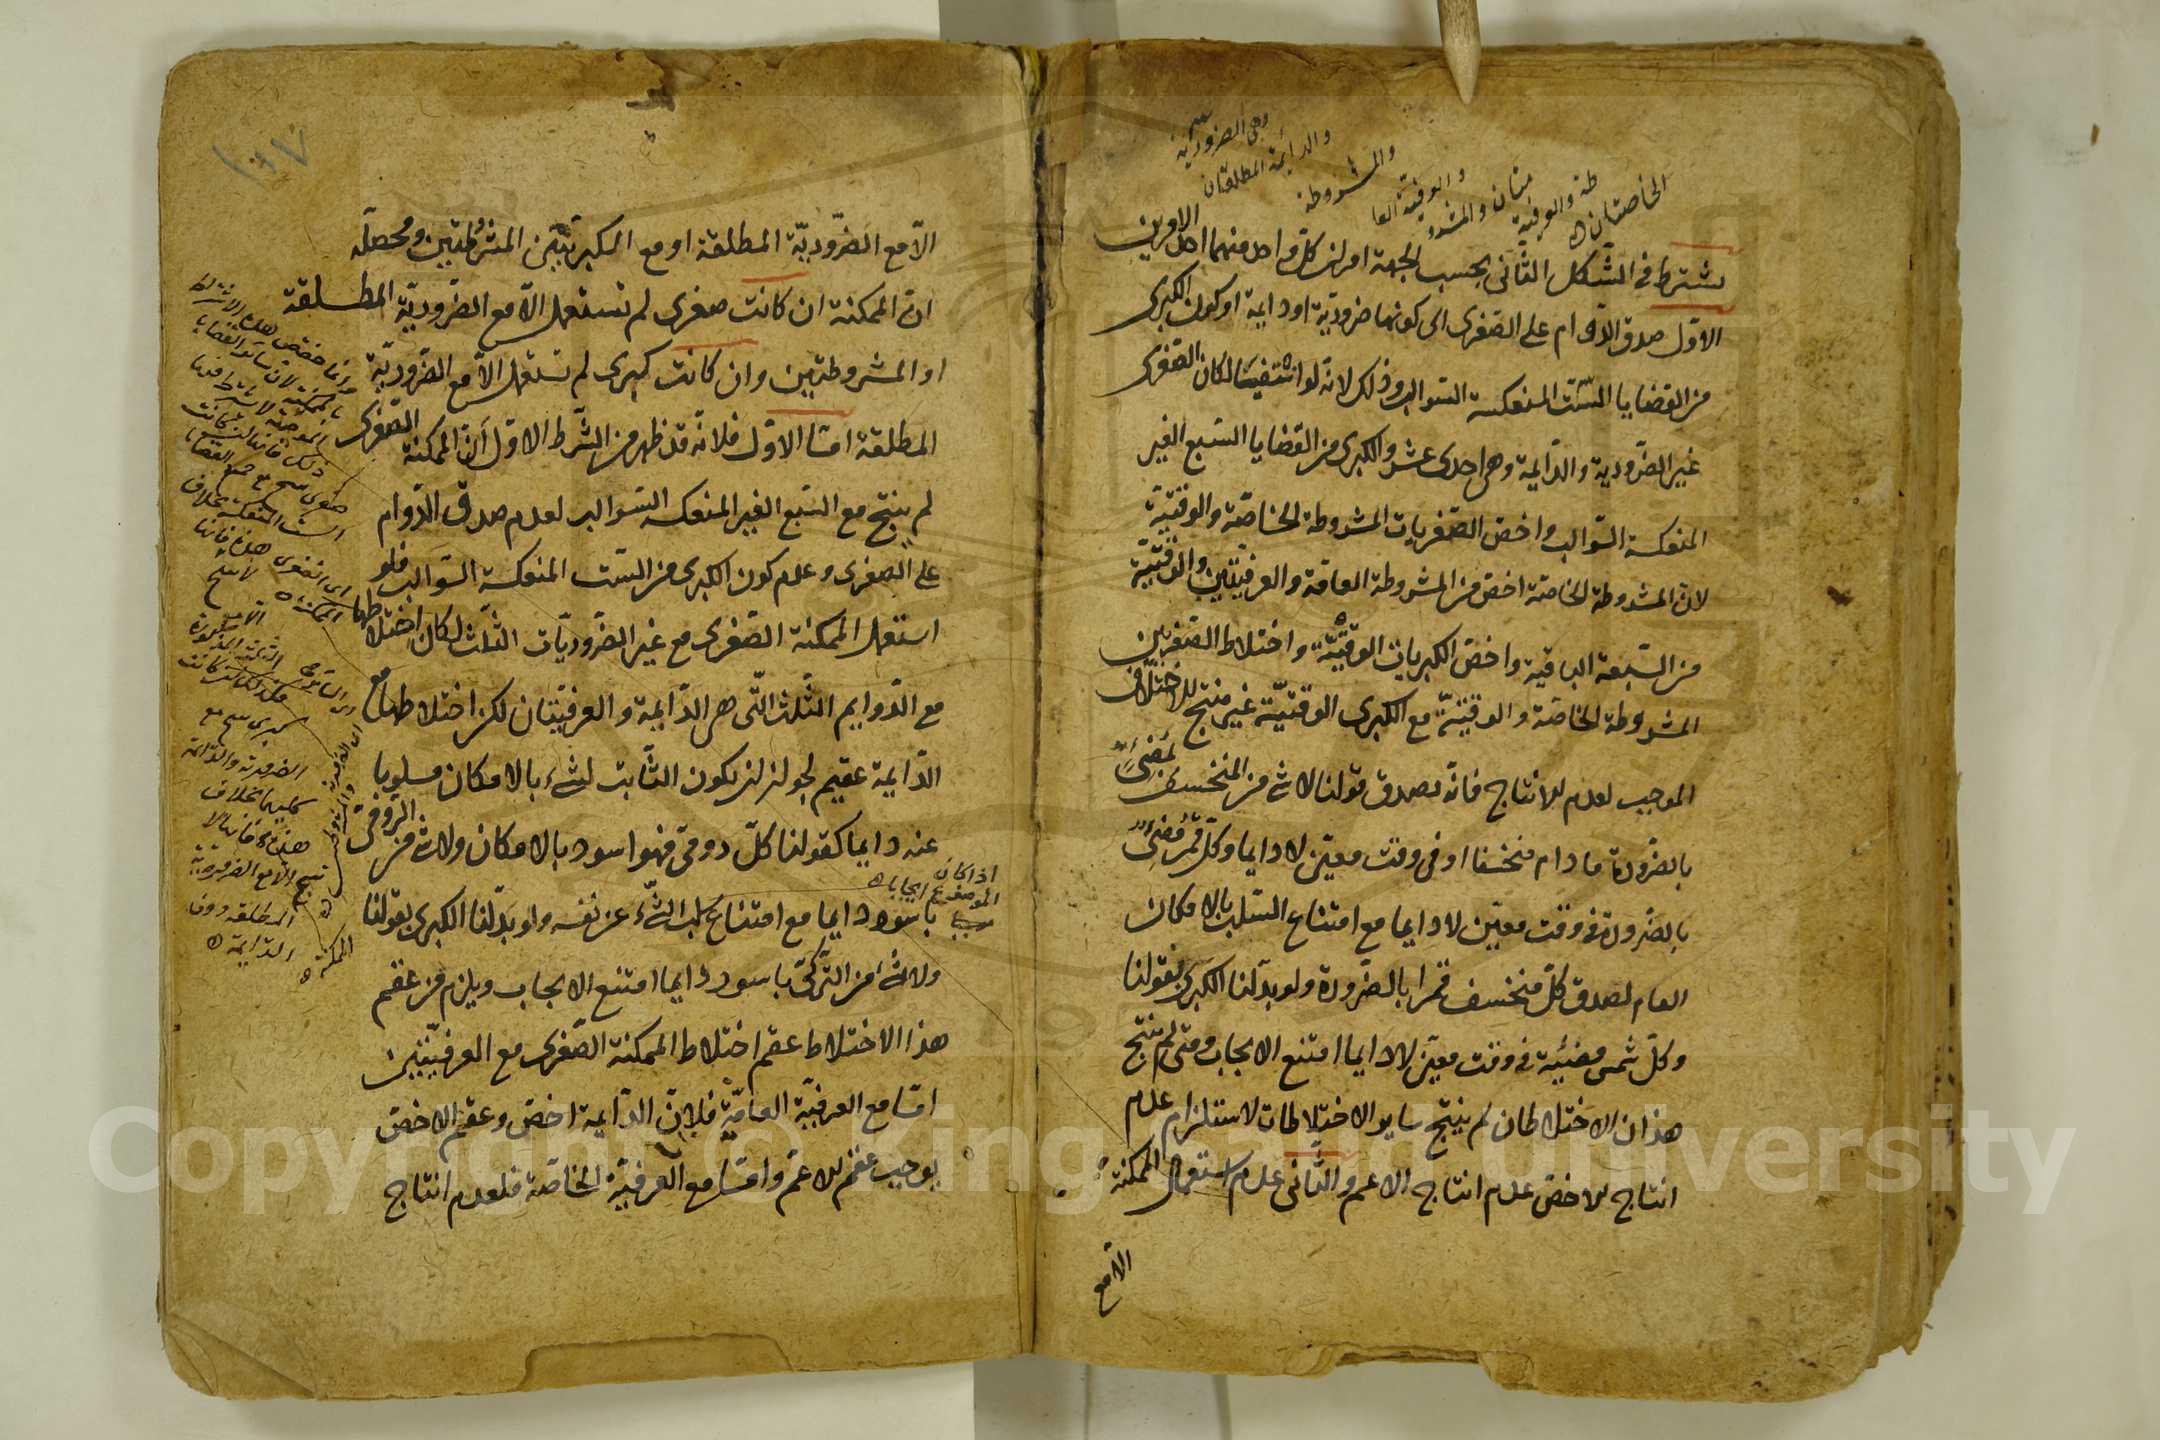 وهى الضرورية
والدايمة المطلقتان
والمشروطة
والعرفية العا
متان والمشرو
طة والعرفية
الخاصتان
يشترط فى الشكل الثانى بحسب الجهة امران كل واحد منهما احد الامرين
الاول صدق الدوام على الصغرى اى كونها ضرورية او دايمة او كون الكبرى
من القضايا الست المنعكسة السوالب وذلك لانه لو انتفيتا لكان الصغرى
غير الضرورية والدايمة وهى احدى عشر والكبرى من القضايا السبع الغير
المنعكسة السوالب واخص الصغريات المشروطة الخاصة والوقتية
لان المشروطة الخاصة اخص من المشروطة العامة والعرفيتين والوقتية
من السبعة الباقية واخص الكبريات الوقتية واختلاط الصغريين
المشروطة الخاصة والوقتية مع الكبرى الوقتية غير منتج للاختلاف
الموجب لعدم الانتاج فانه يصدق قولنا لا شئ من المنخسف بمضئ
بالضرورة ما دام منخسفا او فى وقت معين لا دايما وكل قمر مضئ
بالضرورة فى وقت معين لا دايما مع امتناع السلب بالامكان
العام لصدق كل منخسف قمر بالضرورة ولو بدلنا الكبرى بقولنا
وكل شمس مضيئة فى وقت معين لا دايما امتنع الايجاب ومتى لم ينتج
هذان الاختلاطان لم ينتج ساير الاختلاطات لاستلزام عدم
انتاج الاخص عدم انتاج الاعم والثانى عدم استعمال الممكنة
الا مع
١٠٧
الا مع الضرورية المطلقة او مع الكبريين المشروطتين ومحصله
ان الممكنة ان كانت صغرى لم تستعمل الا مع الضرورية المطلقة
او المشروطتين وان كانت كبرى لم تستعمل الا مع الضرورية
المطلقة اما الاول فلانه قد ظهر من الشرط الاول ان الممكنة الصغرى
لم ينتج مع السبع الغير المنعكسه السوالب لعدم صدق الدوام
على الصغرى وعدم كون الكبرى من الست المنعكسة السوالب فلو
استعمل الممكنة الصغرى مع غير الضروريات الثلث لكان اختلاطها
مع الدوايم الثلث التى هى الدايمة والعرفيتان لكن اختلاطها مع
الدايمة عقيم لجواز ان يكون الثابت لشئ بالامكان مسلوبا
عنه دايما كقولنا كل رومى فهو اسود بالامكان ولا شئ من الرومى
باسود دايما مع امتناع سلب الشئ عن نفسه ولو بدلنا الكبرى بقولنا
ولا شئ من التركى باسود دايما امتنع الايجاب ويلزم من عقم
هذا الاختلاط عقم اختلاط الممكنة الصغرى مع العرفيتين
اما مع العرفية العامية فلان الدايمة اخص وعقم الاخص
يوجب عقم الاعم واما مع العرفية الخاصة فلعدم انتاج
اذا كان
الموضوع ايجابا
وانما خصص هذا الاشتراط
بالممكنة لان ساير القضايا
الضرورية والدايمة
كليهما بخلاف
هذه فانها لا
تنتج الا مع الضرورية
المطلقة دون
الدايمة
الممكنة
Copyright © King Saud University